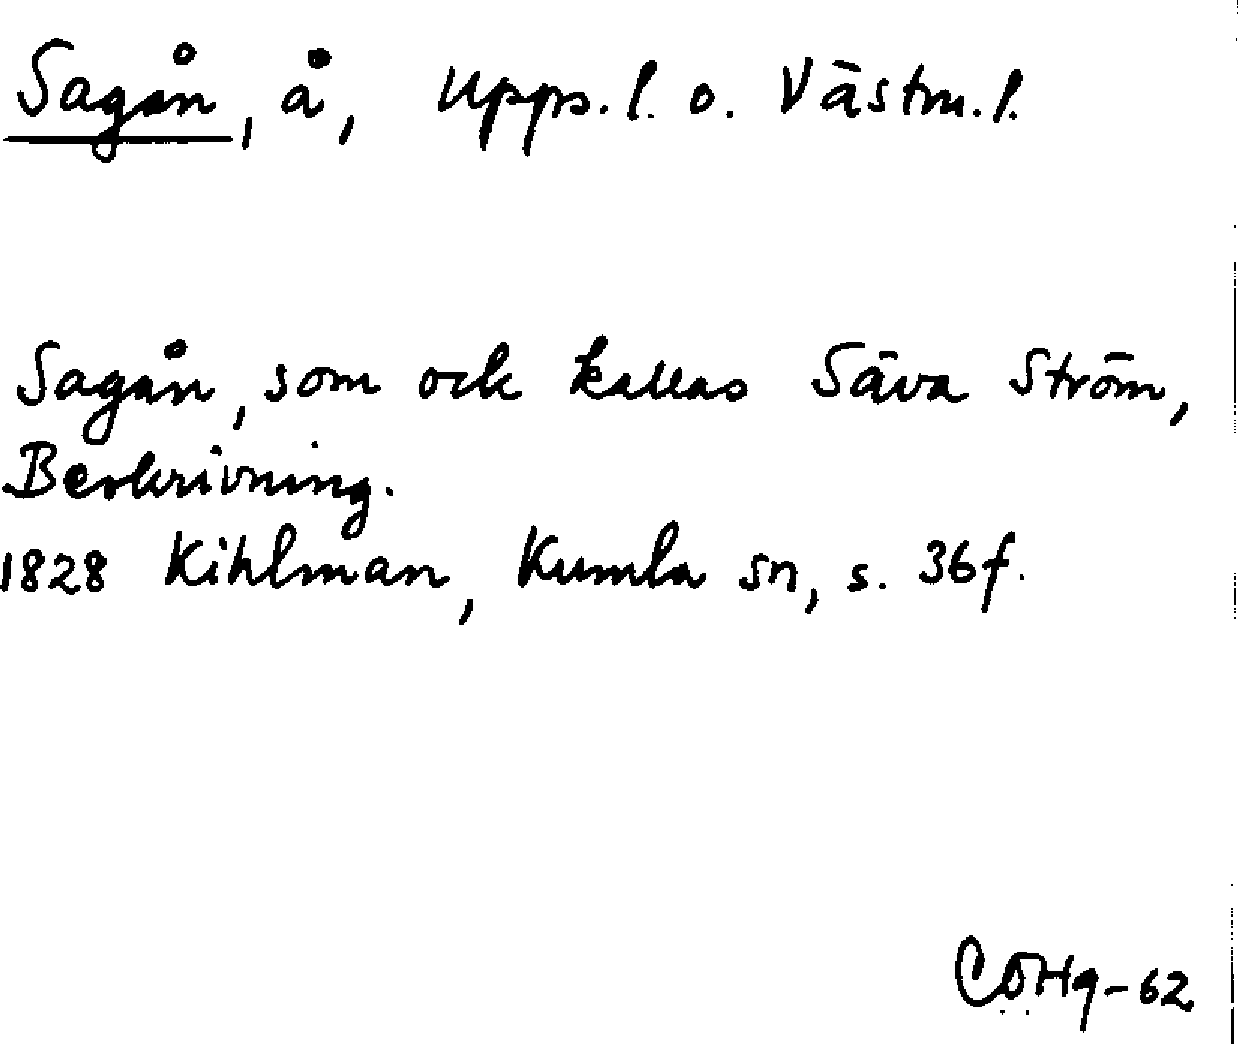 Sagån, å, Upps. l. o. Västm. l.
Sagån, som ock kallas Säva Ström,
Beskrivning.
1828 Kihlman, Kumla sn, s. 36 f.
CÖHg-62